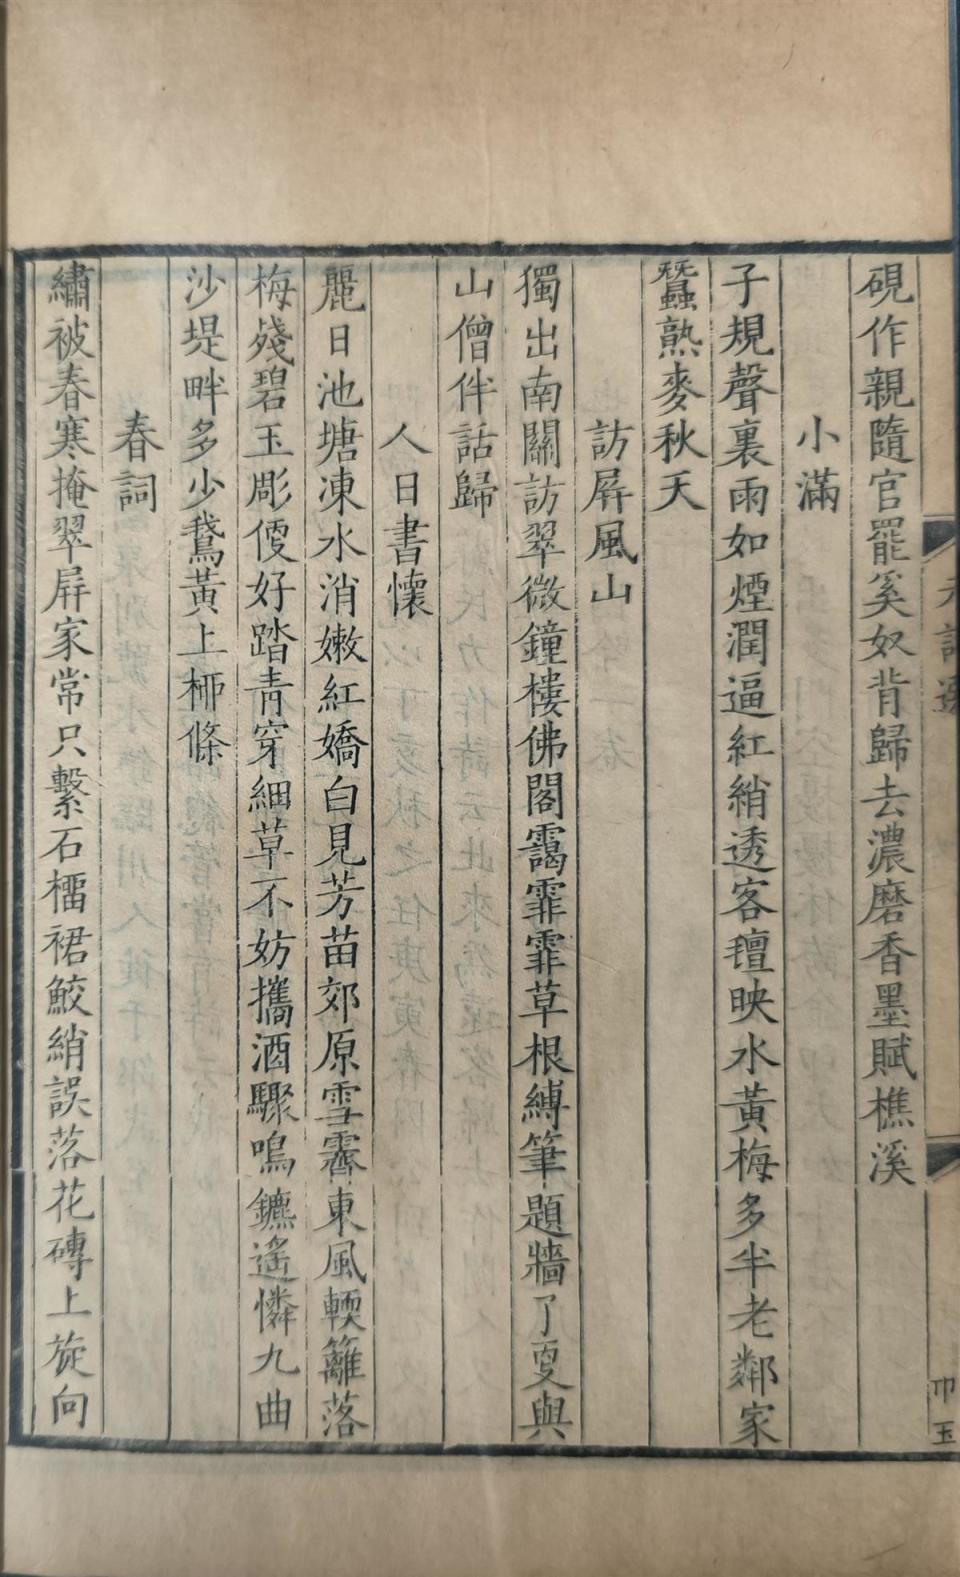 硯作親隨官罷奚奴背歸去濃磨香墨賦樵溪
小滿
子規聲裏雨如煙潤逼紅綃透客氊映水黃梅多半老鄰家
蠶熟麥秋天
訪屛風山
獨出南關訪翠微鐘樓佛閣靄霏霏草根縛筆題牆了更與
山僧伴話歸
人日書懷
麗日池塘凍水消嫩紅嬌白見芳苗郊原雪霽東風輭籬落
梅殘碧玉彫便好踏靑穿細草不妨攜酒驟鳴鑣遙憐九曲
沙堤畔多少鵞黃上栁條
春詞
繡被春寒掩翠屛家常只繫石橊裙鮫綃誤落花磚上旋向
元詩選
巾玉